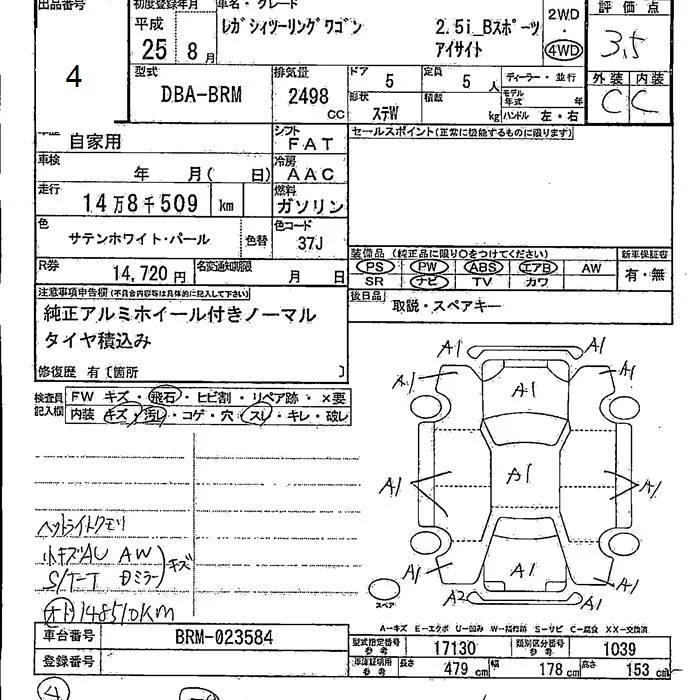 出品番号
4
初度登録年月
平成
25 8月
車名・グレード
レガシィツーリングワゴン 2.5i_Bスポーツ
アイサイト
2WD
・
4WD
評価点
3.5
外装 内装
C C
型式
DBA-BRM
排気量
2498
CC
ドア 5
定員 5 人
形状 ステW
積載 kg
ディーラー・並行
モデル年式 年
ハンドル 左・右
車歴 自家用
シフト FAT
車検 年 月( 日)
冷房 AAC
走行 14万8千509 km
燃料 ガソリン
色 サテンホワイト・パール
色替
色コード 37J
R券 14,720円
名変通知期限 月 日
セールスポイント(正常に機能するものに限ります)
装備品 (純正品に限り○をつけてください)
新車保証書
PS PW ABS エアB AW
SR ナビ TV カワ
有・無
後日品 取説・スペアキー
注意事項申告欄(不具合内容等は具体的に記入して下さい)
純正アルミホイール付きノーマル
タイヤ積込み
修復歴 有〔箇所 〕
検査員記入欄
FW キズ・飛石・ヒビ割・リペア跡・×要
内装 キズ・汚レ・コゲ・穴・スレ・キレ・破レ
ヘットライトクモリ
小キズAU AW
S/T-T Dミラー キズ
オド 148510KM
A1 A1
A1 A1 A1
A1 A1 A1
A1 A1 A1
A2 A1
スペア
A-キズ E-エクボ U-凹み W-補修跡 S-サビ C-腐食 XX-交換済
車台番号 BRM-023584
登録番号
型式指定番号 参考 17130
類別区分番号 参考 1039
車庫証明用 参考 長さ 479 cm 幅 178 cm 高さ 153 cm
4